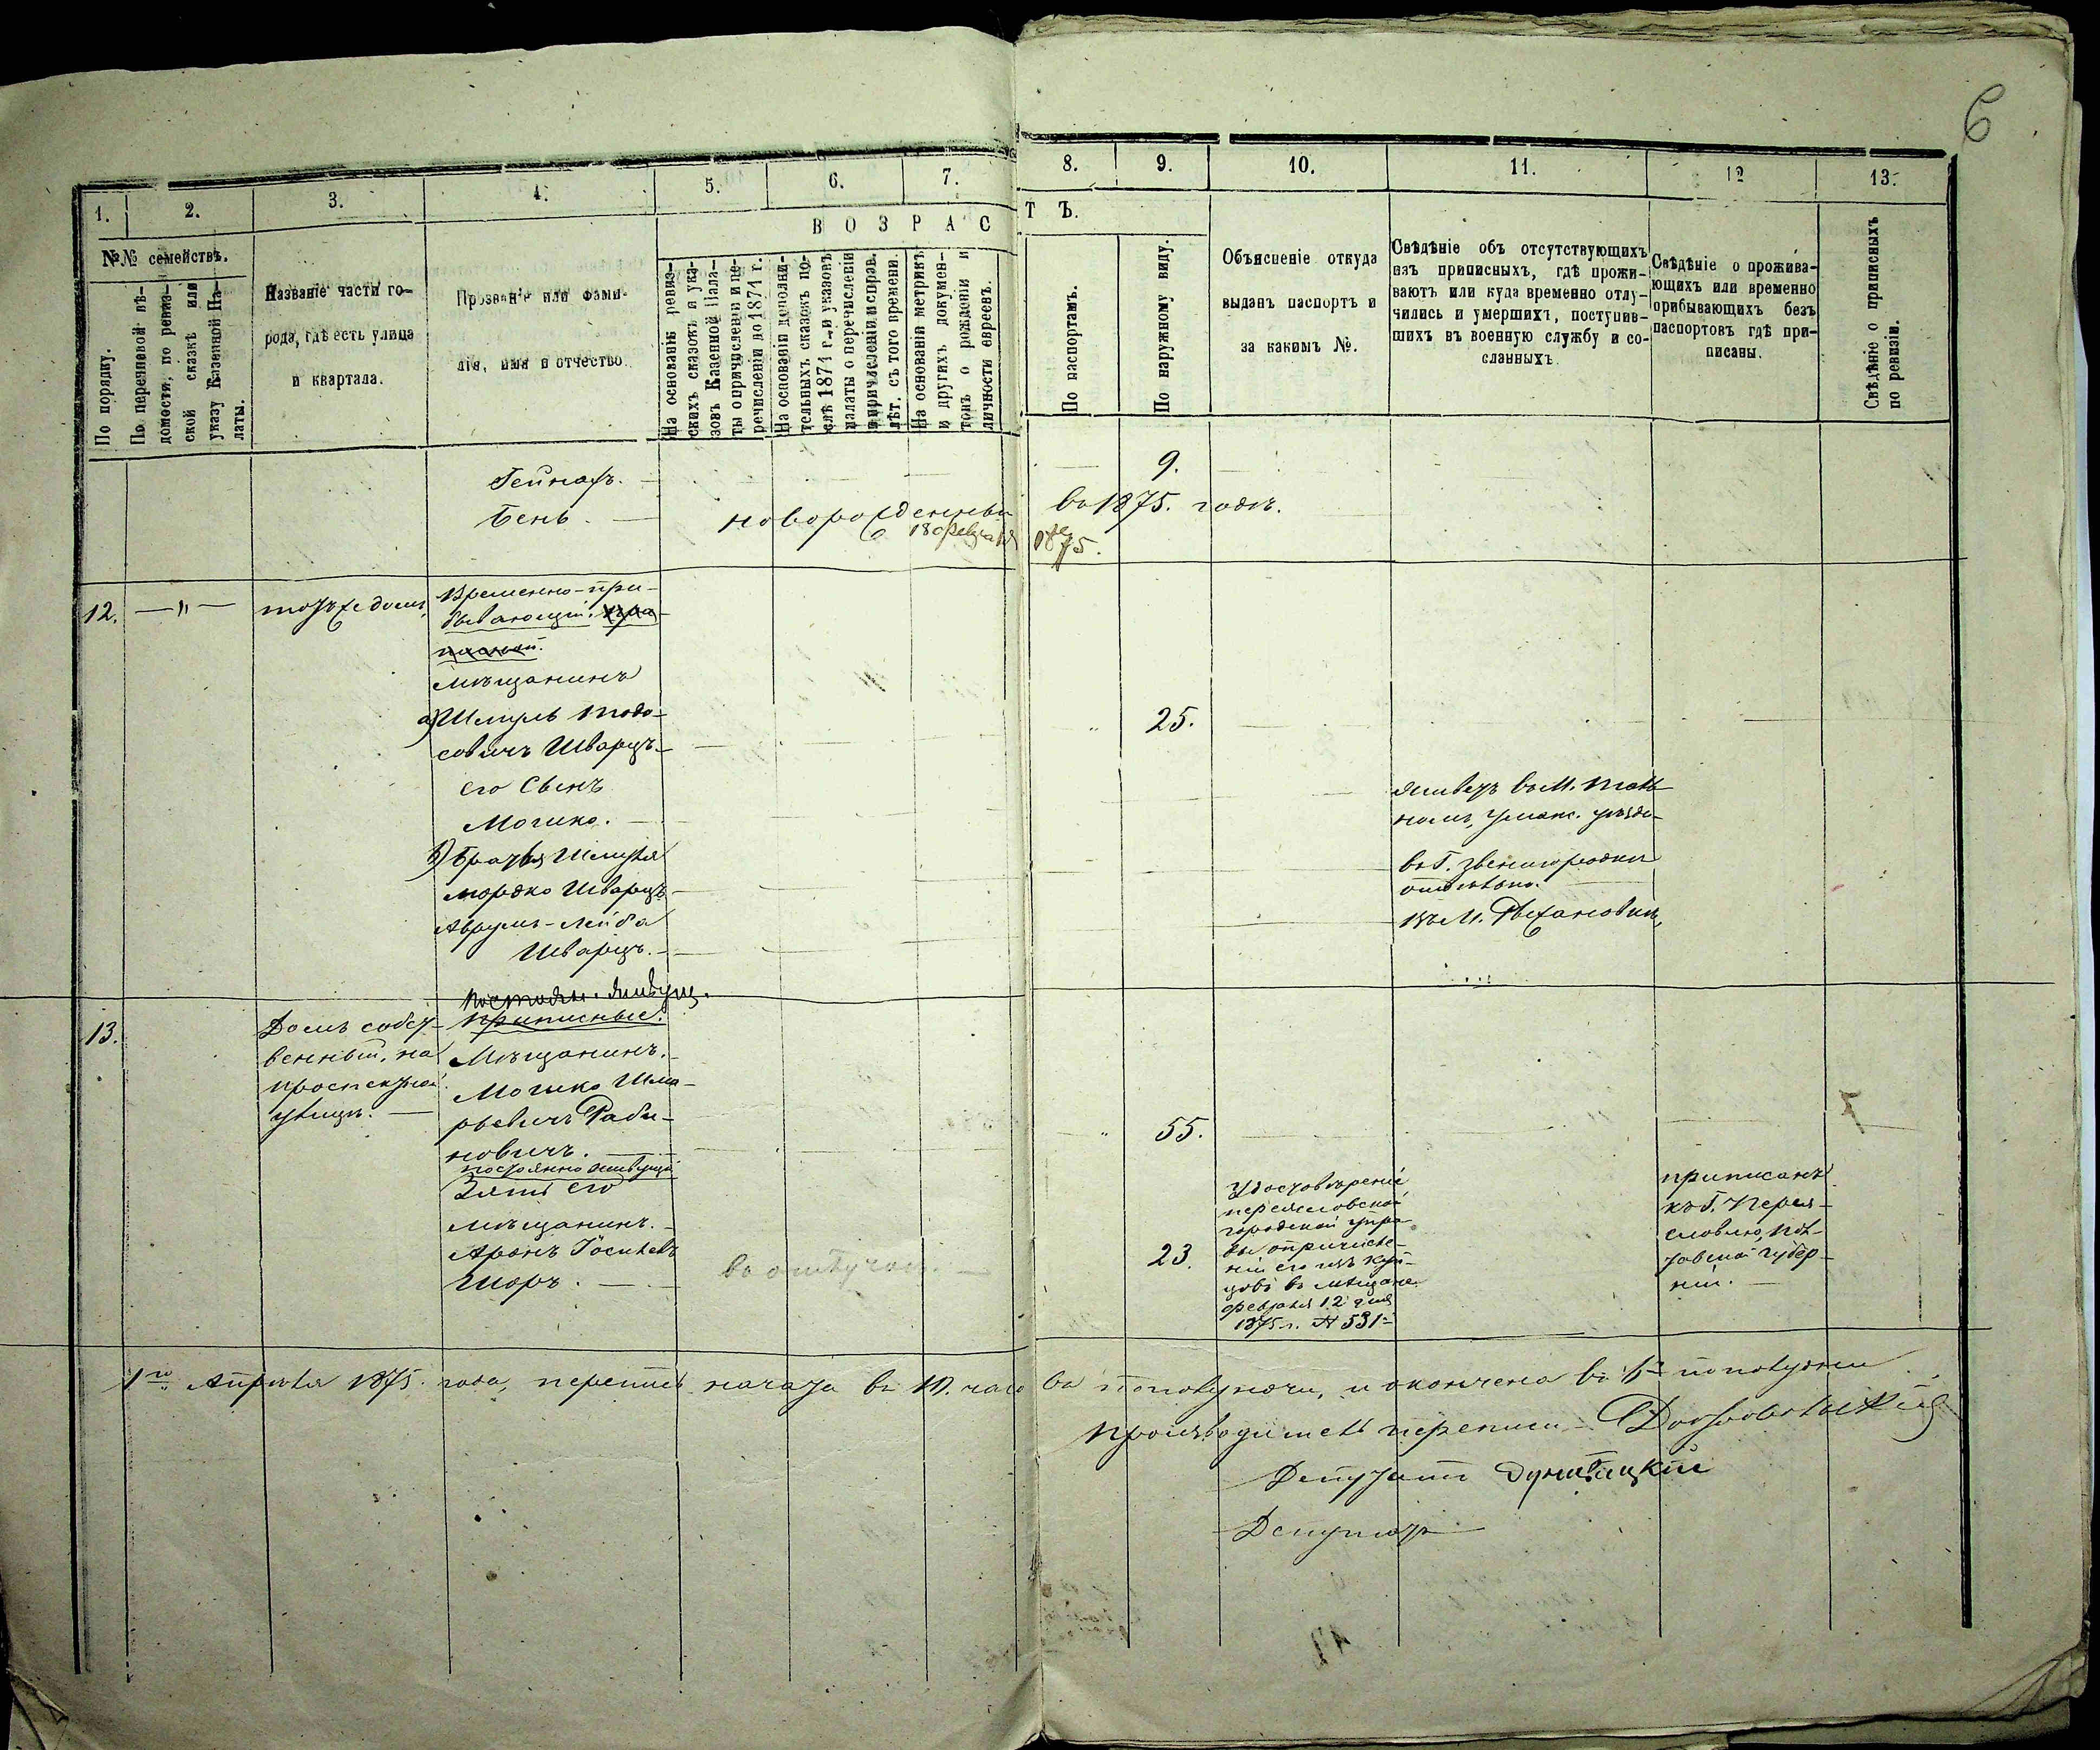 6
1. 2. 3. 4. 5. 6. 7. 8. 9. 10. 11. 12 13.
№№ семействъ.
По порядку.
По перечневой вѣ-
домости, по ревиз-
ской сказкѣ или
указу Казенной Па-
латы.
Названіе части го-
рода, гдѣ есть улица
и квартала.
Прозваніе или фами-
лія, имя и отчество.
ВОЗРАСТЪ.
На основаніи ревиз-
скихъ сказокъ и ука-
зовъ Казенной Пала-
ты о причисленіи и пе-
речисленіи до 1874 г.
На основаніи дополни-
тельныхъ сказокъ по-
слѣ 1874 г. и указовъ
палаты о перечисленіи
и причисленіи и справ.
лѣт. съ того времени.
На основаніи метрикъ
и другихъ докумен-
товъ о рожденіи и
личности евреевъ.
По паспортамъ.
По наружному виду.
Объясненіе откуда
выданъ паспортъ и
за какимъ №.
Свѣдѣніе объ отсутствующихъ
изъ приписныхъ, гдѣ прожи-
ваютъ или куда временно отлу-
чились и умершихъ, поступив-
шихъ въ военную службу и со-
сланныхъ.
Свѣдѣніе о прожива-
ющихъ или временно
прибывающихъ безъ
паспортовъ гдѣ при-
писаны.
Свѣдѣніе о приписныхъ
по ревизіи.
Гейнахъ. 9.
Бень. новорожденный въ 1875. годѣ.
18 февраля 1875.
12. — " — тотъ же домъ,
Временно-при-
бывающій.
мѣщанинъ
а) Шмуль Тодо-
совичъ Шварцъ 25.
его Сынъ
Мошко.
живетъ въ М. Таль-
номъ, Уманс. уѣзда
б) Братья Шмуля
мордко Шварцъ
въ Г. Звенигородки
Аврумъ-Лейба
Шварцъ.
въ М. Рыжановки,
13.
Домъ собст-
венный, на
проспектной
улицѣ.
Постоян. живущ.
приписные.
Мѣщанинъ.
Мошко Шма-
рьевичъ Раби-
новичъ. 55.
постоянно живущій
Зять его
мѣщанинъ.
Аронъ Іосилевъ
Шоръ. 23.
въ отлучкѣ.
Удостовѣреніе
переяславской
городской упра-
вы о причисле-
ніи его изъ куп-
цовъ въ мѣщане
февраля 12 дня
1875 г. № 531
приписанъ
къ Г. Перея-
славлю, Пол-
тавской губер-
ніи.
1го Апрѣля 1875. года, перепись начата въ 10. часо въ пополуночи, и окончена въ 6 пополудни
Производитель переписи
Депутатъ
Депутатъ